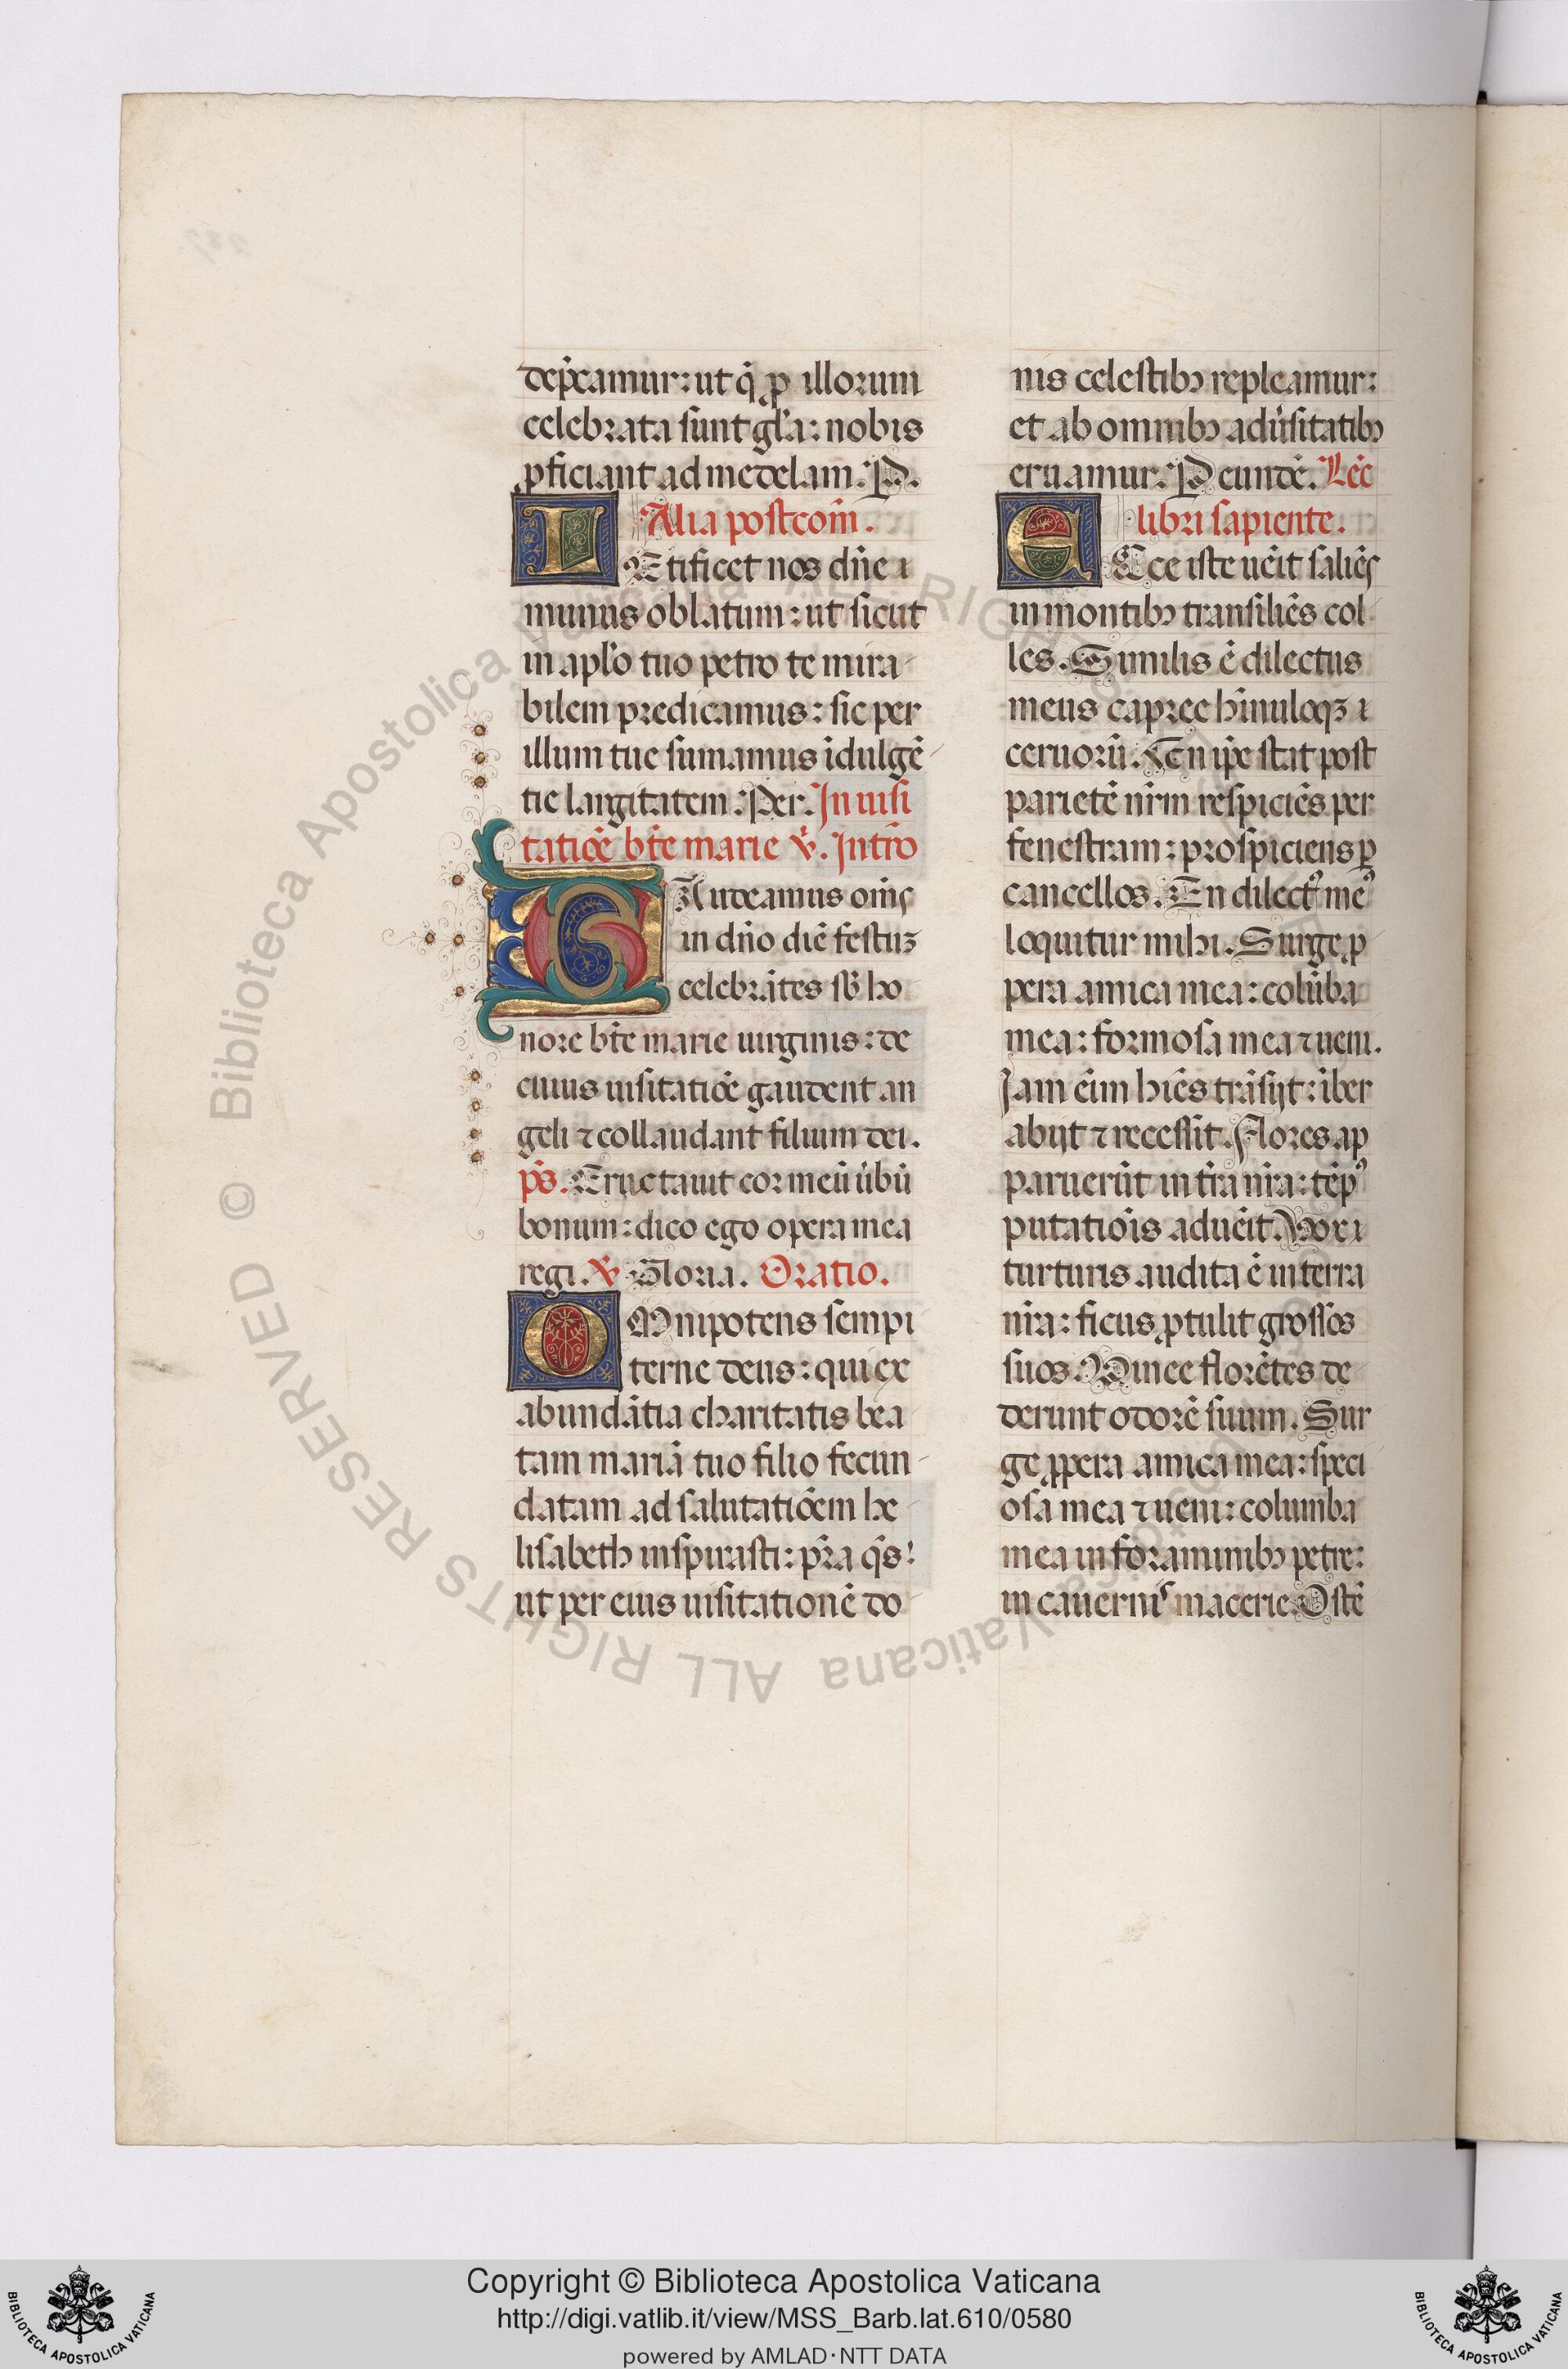 dep̄camur: ut q̄ ꝓ illorum
celebrata sunt gl̄a: nobis
ꝓficiant ad medelam. P.
Alia postcom̄.
LEtificet nos dn̄e ⁊
munus oblatum: ut sicut
in apl̄o tuo petro te mira
bilem predicamus: sic per
illum tue sumamus īdulgē
tie largitatem. Per. In uisi
tatiōe bt̄e marie v̄. Intro
GAudeamus om̄s
in dn̄o diē festuꝫ
celebrātes sb̄ ho
nore bt̄e marie uirginis: de
cuius uisitatiōe gaudent an
geli ⁊ collaudant filium dei.
p̄s. Eructauit cor meū ūbū
bonum: dico ego opera mea
regi. v̄ Gloria. Oratio.
OMnipotens sempi
terne deus: qui ex
abundātia charitatis bea
tam mariā tuo filio fecun
datam ad salutatiōem he
lisabeth inspirasti: pr̄a q̄s:
ut per eius uisitationē do
nis celestibꝫ repleamur:
et ab omnibꝫ adūsitatibꝫ
eruamur. P eundē. Lēc
libri sapiente.
ECce iste uēit saliēs
in montibꝫ transiliēs col
les. Similis ē dilectus
meus capree hinuloqꝫ ⁊
ceruorū. En ip̄e stat post
parietē nr̄m respiciēs per
fenestram: prospiciens ꝑ
cancellos. En dilectꝰ meꝰ
loquitur mihi. Surge ꝓ
pera amica mea: colūba
mea: formosa mea ⁊ ueni.
Jam eīm hiēs trāsijt: īber
abijt ⁊ recessit. Flores ap
paruerūt in tr̄a nr̄a: tēpꝰ
putatiōis aduēit. Vox ⁊
turturis audita ē in terra
nr̄a: ficus ꝓtulit grossos
suos. Vinee florētes de
derunt odorē suum. Sur
ge ꝓpera amica mea: speci
osa mea ⁊ ueni: columba
mea in foraminibꝫ petre:
in cauernis macerie. Ostē
© Biblioteca Apostolica Vaticana ALL RIGHTS RESERVED
Copyright © Biblioteca Apostolica Vaticana
http://digi.vatlib.it/view/MSS_Barb.lat.610/0580
powered by AMLAD·NTT DATA
BIBLIOTECA APOSTOLICA VATICANA
BIBLIOTECA APOSTOLICA VATICANA